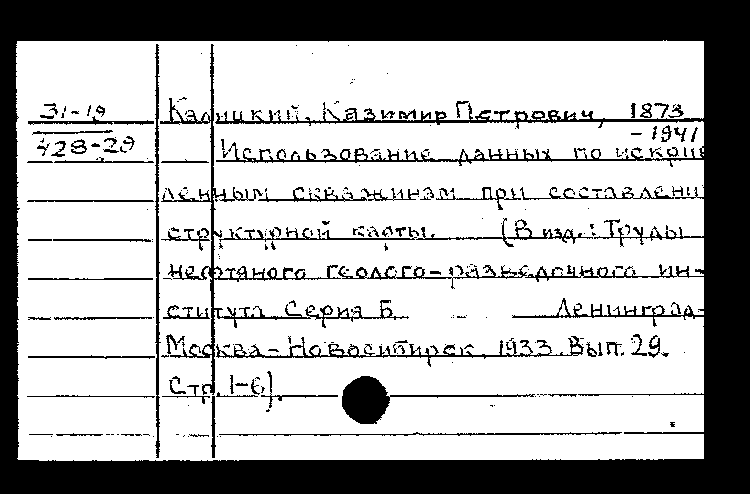 31-19
428-29
Калицкий, Казимир Петрович, 1873
-1941
Использование данных по искрив
ленным скважинам при составлени
структурной карты. (В изд.: Труды
нефтяного геолого-разведочного ин-
ститута Серия Б Ленинград-
Москва-Новосибирск, 1933. Вып. 29.
Стр. 1-6).